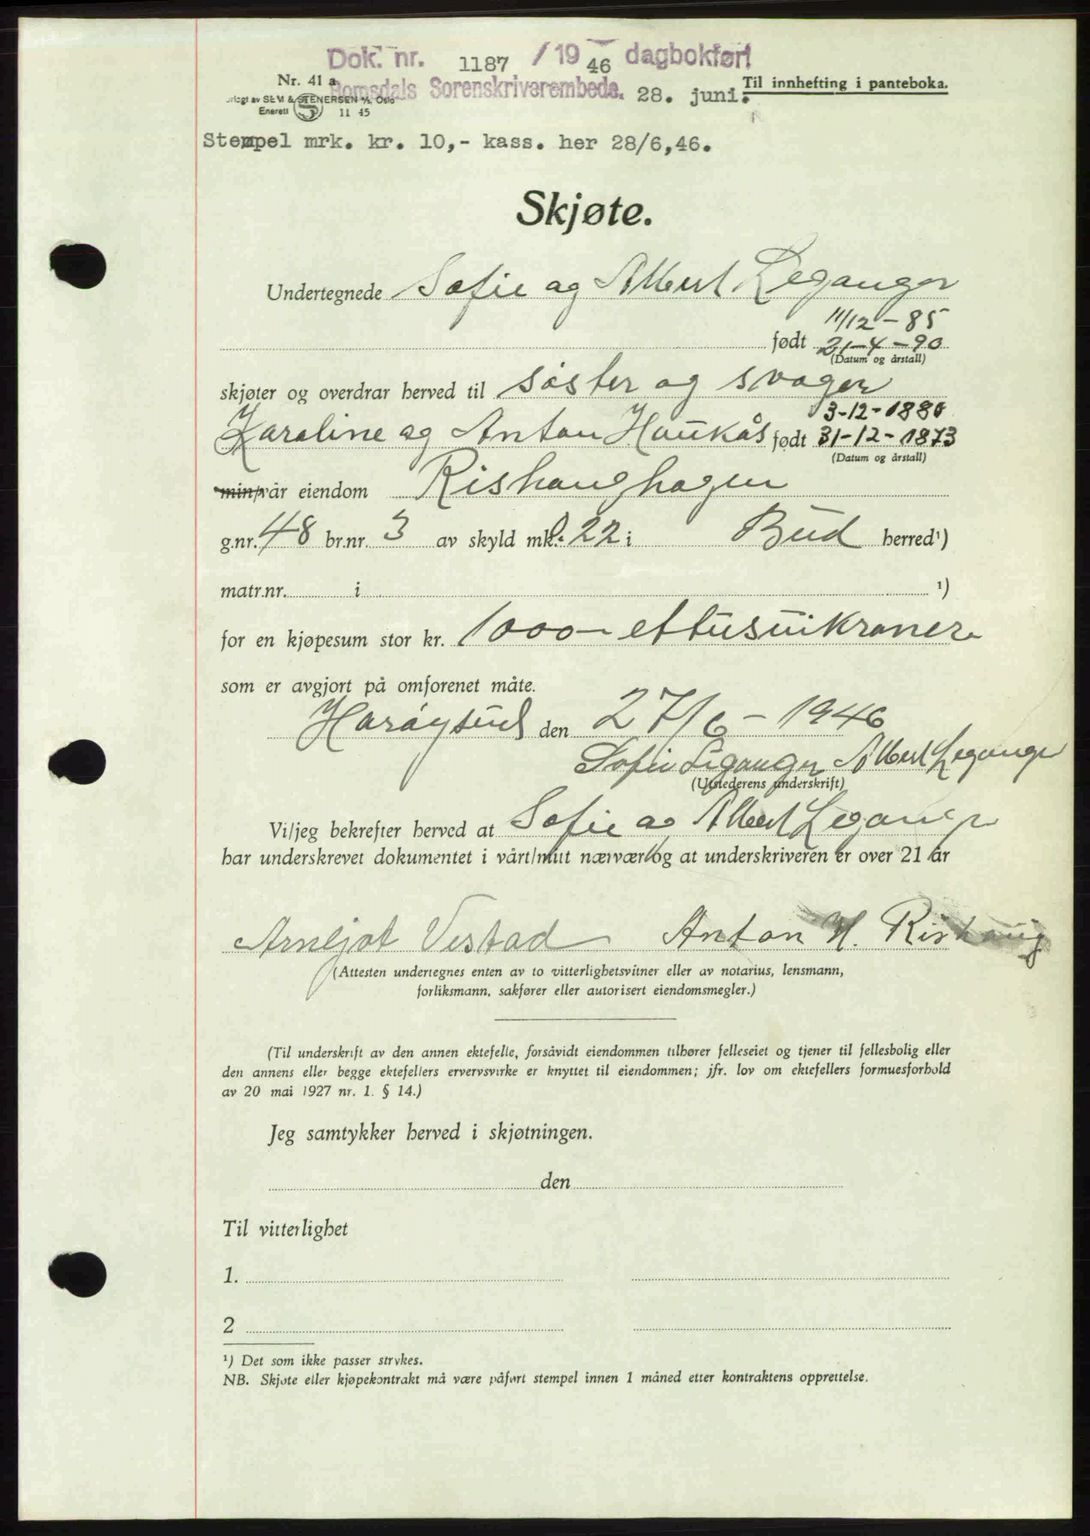 Dok. nr. 1187 / 19 46 dagbokført
Nr. 41 a Romsdals Sorenskriverembede. 28. juni. Til innhefting i panteboka.
SEM & STENERSEN A/S Oslo
Enerett 11 45
Stempel mrk. kr. 10,- kass. her 28/6,46.
Skjøte.
Undertegnede Sofie og Albert Leganger
11/12-85
født 21-4-90
(Datum og årstall)
skjøter og overdrar herved til søster og svoger
3-12-1880
Karoline og Anton Haukås født 31-12-1873
(Datum og årstall)
min/vår eiendom Rishaughagen
g.nr. 48 br.nr. 3 av skyld mk. 0.22 i Bud herred¹)
matr.nr. i ¹)
for en kjøpesum stor kr. 1000 - ettusuikroner
som er avgjort på omforenet måte.
Harøysund den 27/6-1946
Sofie Leganger Albert Leganger
(Utstederens underskrift)
Vi/jeg bekrefter herved at Sofie og Albert Leganger
har underskrevet dokumentet i vårt/mitt nærvær og at underskriveren er over 21 år
Arnljot Vestad Anton H. Rishaug
(Attesten undertegnes enten av to vitterlighetsvitner eller av notarius, lensmann,
forliksmann, sakfører eller autorisert eiendomsmegler.)
(Til underskrift av den annen ektefelle, forsåvidt eiendommen tilhører felleseiet og tjener til fellesbolig eller
den annens eller begge ektefellers ervervsvirke er knyttet til eiendommen; jfr. lov om ektefellers formuesforhold
av 20 mai 1927 nr. 1. § 14.)
Jeg samtykker herved i skjøtningen.
den
Til vitterlighet
1.
2
¹) Det som ikke passer strykes.
NB. Skjøte eller kjøpekontrakt må være påført stempel innen 1 måned etter kontraktens opprettelse.